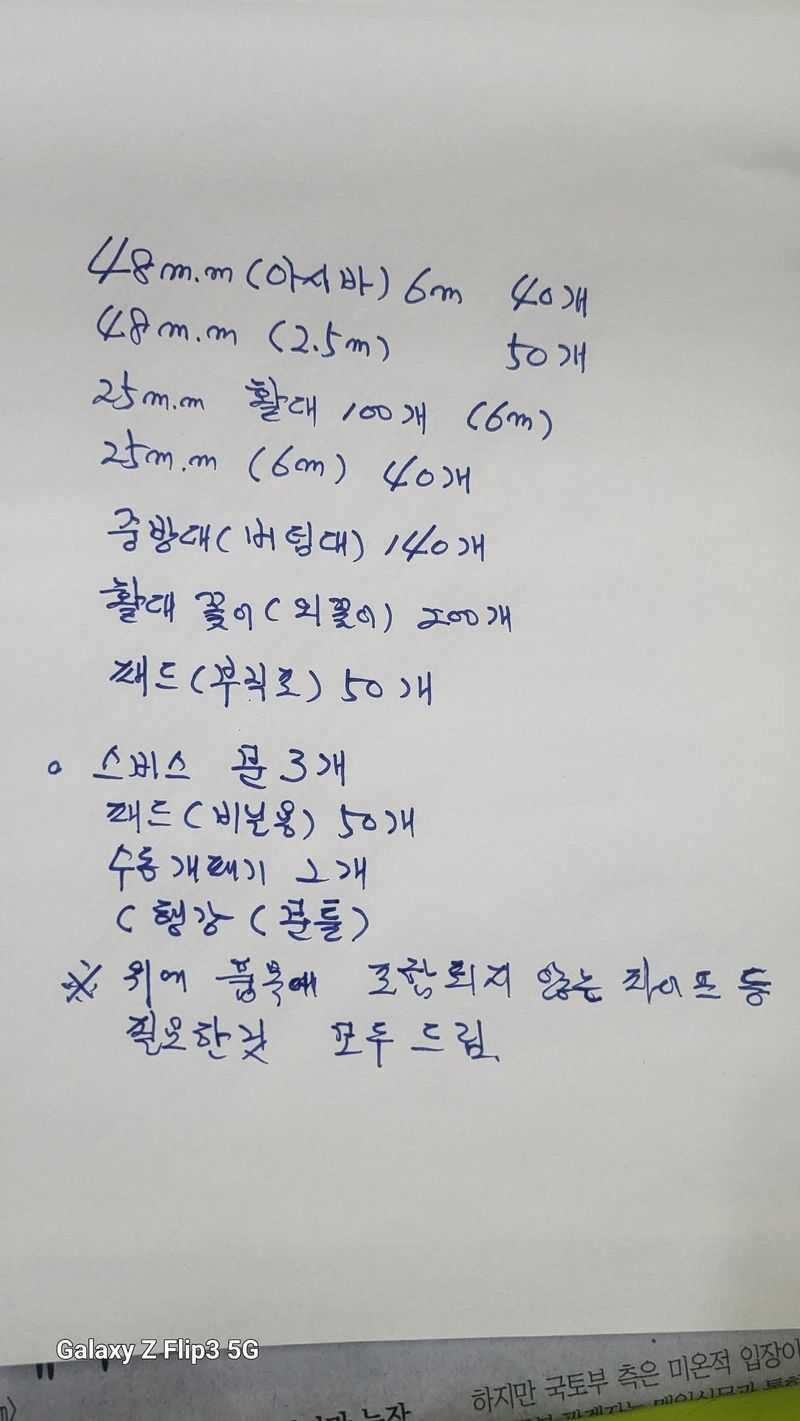 48m.m (아시바) 6m 40개
48m.m (2.5m) 50개
25m.m 활대 100개 (6m)
25m.m (6m) 40개
중방대 (버팀대) 140개
활대 꽂이 (외꽂이) 200개
패드 (부직포) 50개
스비스 문 3개
패드 (비닐용) 50개
수동개폐기 2개
(행강 (문틀)
※ 위에 품목에 포함되지 않는 파이프 등
필요한것 모두 드림.
Galaxy Z Flip3 5G
하지만 국토부 측은 미온적 입장이